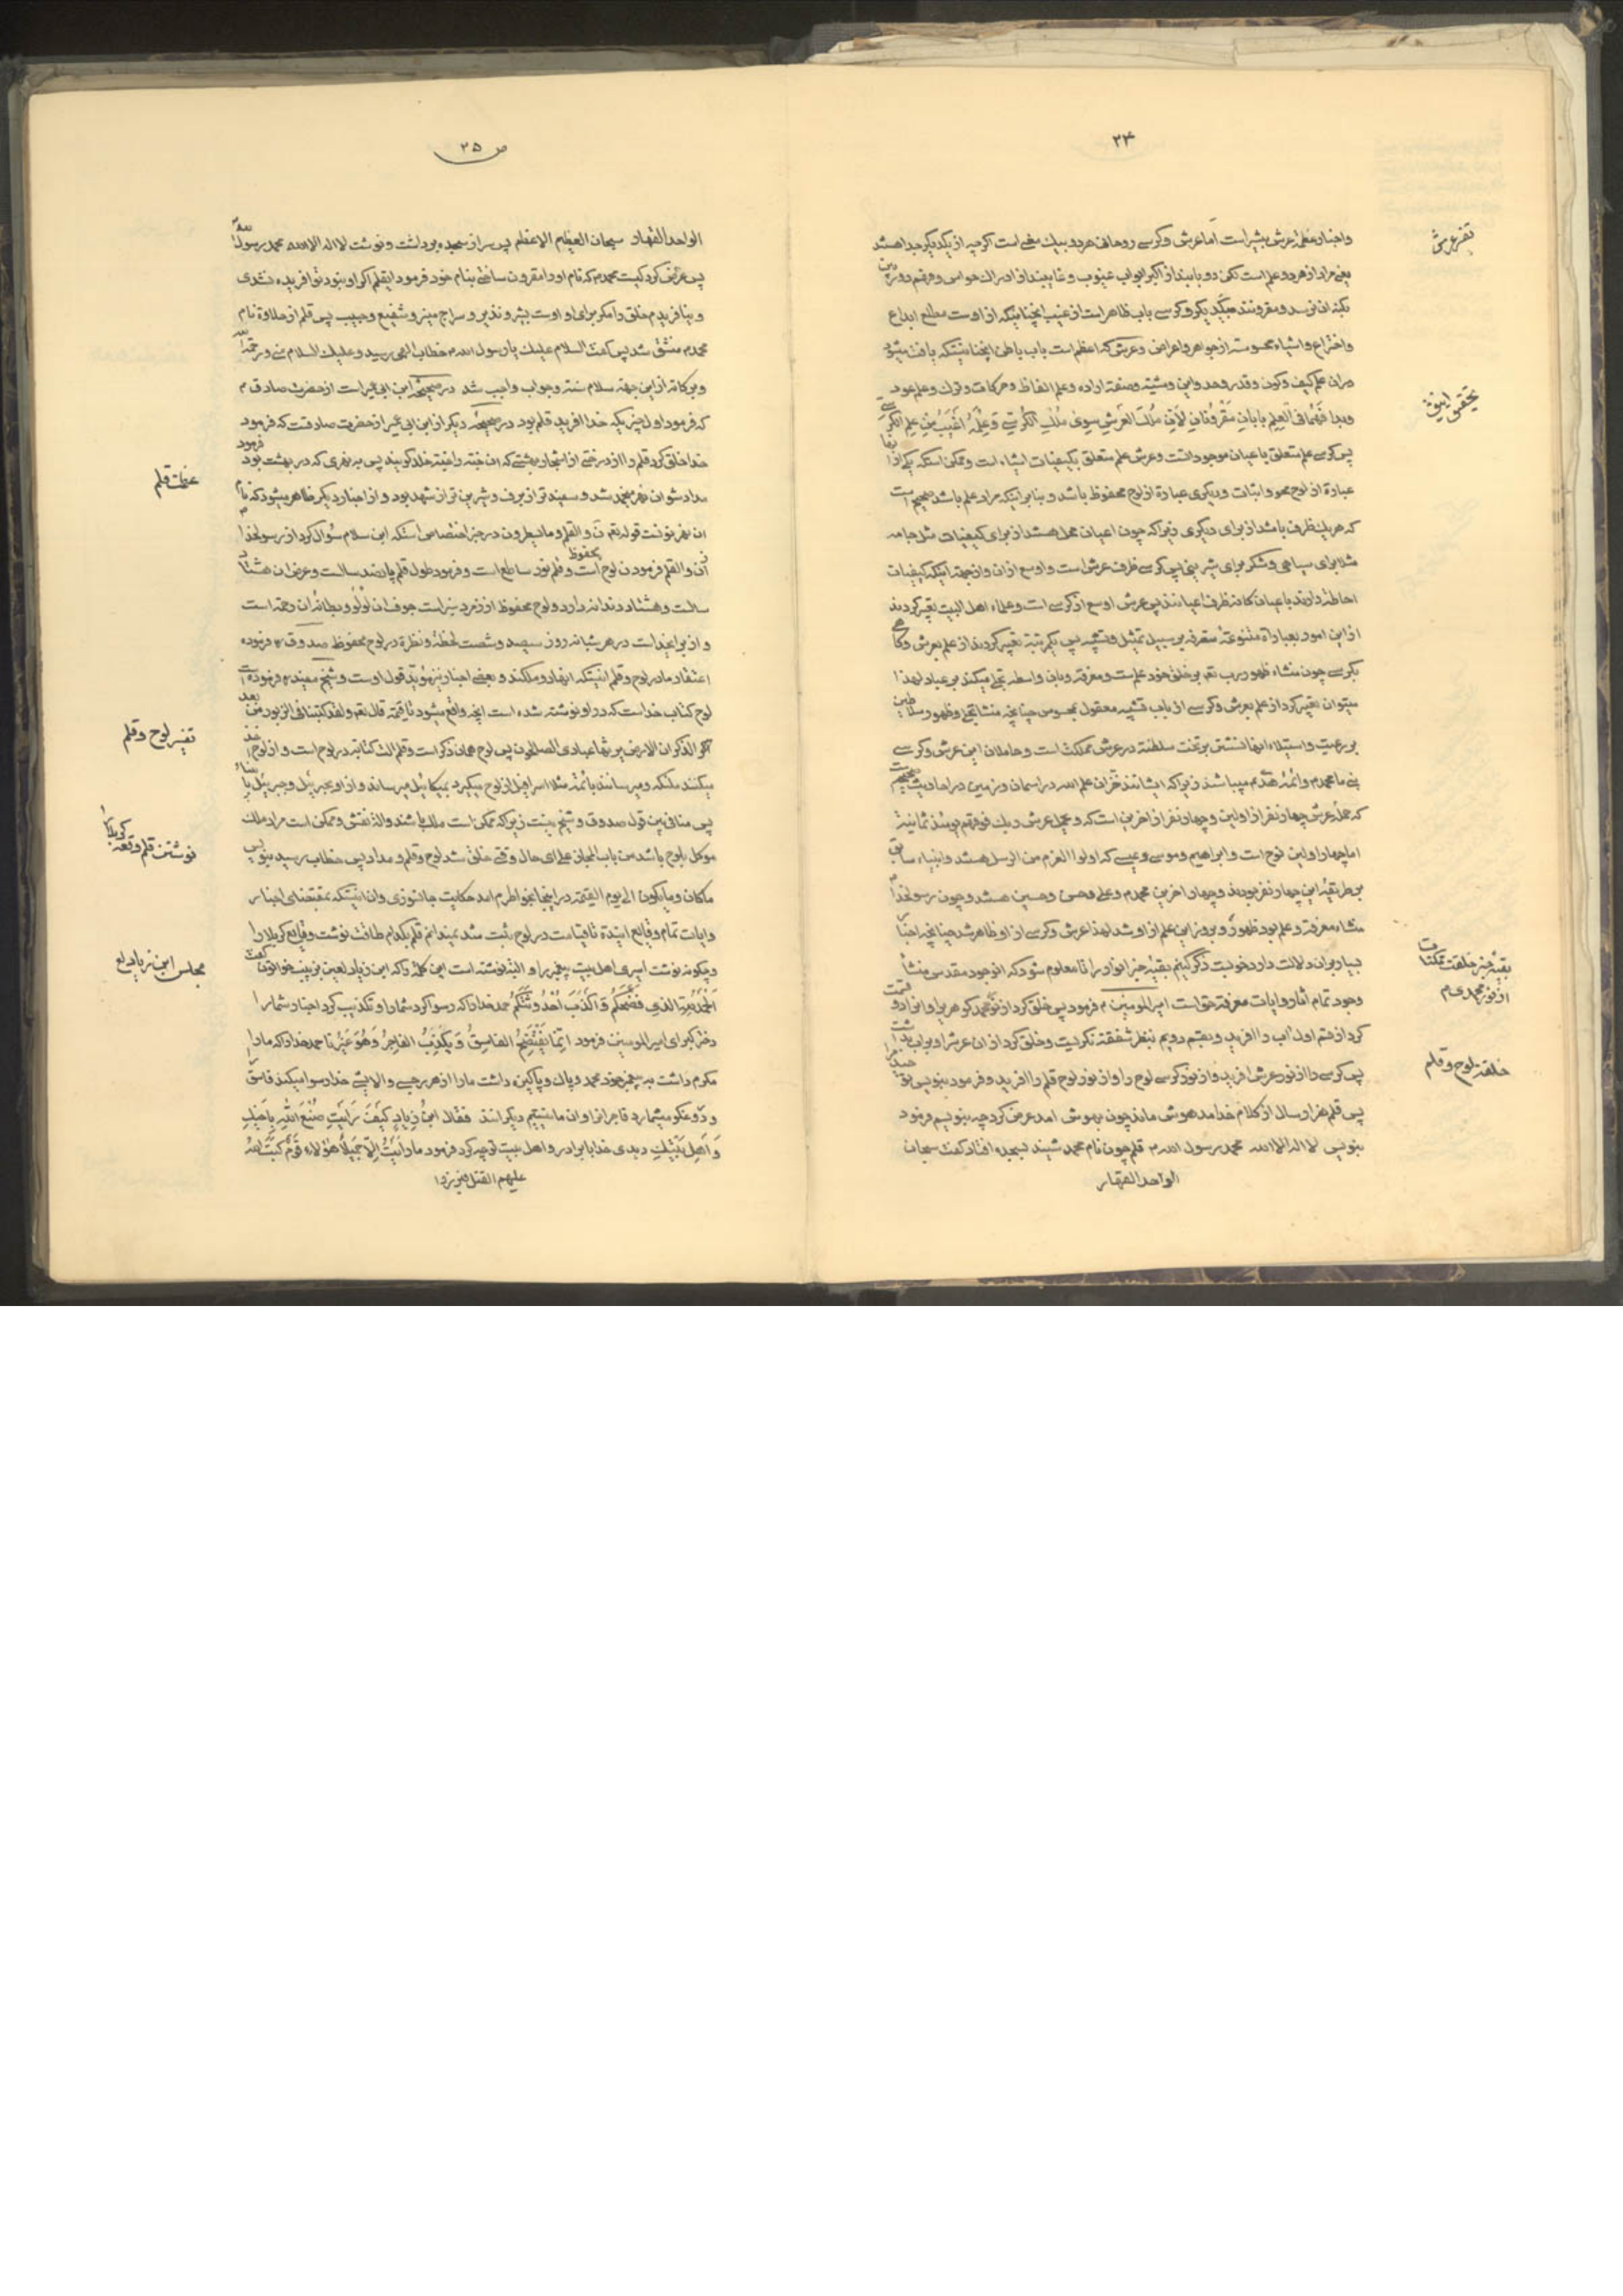 ۲۴
تفسیر عرش
واخبار عظمة عرش بیشتر است اما عرش وکرسے روحانی هردو بیك معنی است اگرچه از یکدیگر جدا هستند
یعنی مراد از هردو علم است لکن دو بابند از اکبر ابواب غیوب و غایبند از ادراك حواس و فهم دوربین
بکنه ان نرسد و مقرونند بیکدیگر و کرسے باب ظاهر است از غیب انچنانیکه از اوست مطلع ابداع
واختراع واشیاء محسوسه از جواهر واعراض وعرش که اعظم است باب باطن انچنانیستکه یافت میشود
تحقیق انیق
دران علم کیف وکون وقدر وحد واین ومشیته وصفة اراده وعلم الفاظ وحرکات وترك وعلم عود
وبدا فَهُما فی العِلمِ بابانِ مَقْرُونانِ لِاَنَّ مُلكَ العَرشِ سِویٰ مُلْكِ الکُرسِّے وَعِلْمُهُ اَغْیَبُ مِن عِلمِ الکُرسے
پس کرسے علم متعلق باعیان موجود است وعرش علم متعلق بکیفیات اشیاء است وممکن استکه یکے از انها
عبارة از لوح محو واثبات ودیگری عبارة از لوح محفوظ باشد وبنا بر اینکه مراد علم باشد صحیح است
که هریك ظرف باشد از برای دیگری زیراکه چون اعیان محل هستند از برای کیفیات مثل جامه
مثلا برای سیاهی وشکر برای شیرینی پس کرسے ظرف عرش است واوسع از ان واز جهة اینکه کیفیات
احاطه دارند باعیان کانه ظرف اعیانند پس عرش اوسع از کرسے است وعلماء اهل البیت تعبیر کردند
از این امور بعباراة متنوعة متفرقه بر سبیل تمثیل وتشبیه پس یکمرتبه تعبیر کردند از علم بعرش وگاهے
بکرسے چون منشاء ظهور رب تعم بر خلق خود علمست ومعرفة وبان واسطه تجلے میکند بر عباد لهذا
میتوان تعبیر کرد از علم بعرش وکرسے از باب تشبیه معقول بمحسوس چنانچه منشا تجلے وظهور سلاطین
بر رعیت واستیلاء انها نشستن بر تخت سلطنة در عرش مملکت است وحاملان این عرش وکرسے
نبی ما محمدم وائمه هدیم میباشند زیراکه ایشانند خزان علم الله در اسمان وزمین در احادیث صحیحه است
که حملهٔ عرش چهار نفر از اولین وچهار نفر از اخرین است که ویحمل عرش ربك فوقهم یومئذ ثمانیة
اما چهار اولین نوح است وابراهیم وموسے وعیسے که اولوا العزم من الرسل هستند وانبیاء سابق
بر طریقهٔ این چهار نفر بودند وچهار اخرین محمدم وعلے وحسن وحسین هستند وچون رسولخدا
منشاء معرفة وعلم بود ظهور وبروز این علم از او شد لهذا عرش وکرسے از او ظاهر شد چنانچه اخبار
بقیهٔ خبر خلقت ممکنات از نور محمدی م
بسیار بران دلالت دارد خوبست ذکر کنیم بقیهٔ خبر انوار را تا معلوم شود که انوجود مقدس منشأ
وجود تمام اثار وایات معرفة حق است امیرالمومنین م فرمود پس خلق کرد از نور محمد گوهریرا وانرا دو قسمت
کرد از قسم اول اب را افرید وبقسم دویم بنظر شفقة نگریست وخلق کرد از ان عرش را وبر اب بداشت
خلقة لوح وقلم
پس کرسے را از نور عرش افرید واز نور کرسے لوح را واز نور لوح قلم را افرید وفرمود بنویس توحید مرا
پس قلم هزار سال از کلام خدا مدهوش ماند چون بهوش امد عرض کرد چه بنویسم فرمود
بنویس لا اله الا الله محمد رسول الله م قلم چون نام محمد شنید بسجده افتاد گفت سبحان
الواحد القهار
ص ۲۵
الواحد القهار سبحان العظیم الاعظم پس سر از سجده برداشت ونوشت لا اله الا الله محمد رسول الله
پس عرض کرد کیست محمدم که نام او را مقرون ساختے بنام خود فرمود ایقلم اگر او نبود تو افریده نشدی
ونیافریدم خلق را مگر برای او اوست بشیر ونذیر وسراج منیر وشفیع وحبیب پس قلم از حلاوة نام
محمدم منشق شد پس گفت السلام علیك یا رسول الله م خطاب الهی رسید وعلیك السلام منے ورحمة الله
وبرکاته از این جهة سلام سنة وجواب واجب شد در صحیحهٔ ابن ابی عمیر است از حضرت صادق م
که فرمود اول چیزیکه خدا افرید قلم بود در صحیحهٔ دیگر از ابن ابی عمیر از حضرت صادقست که فرمود
صفات قلم
خدا خلق کرد قلم را از درختے از اشجار بهشتے که ان جنة را جنة خلد گویند پس به نهری که در بهشت بود فرمود
مداد شو ان نهر منجمد شد وسفید تر از برف وشیرین تر از شهد بود واز اخبار دیگر ظاهر میشود که نام
ان نهر نونست قوله تعم نٓ والقلم وما یسطرون در خبر اختصاص استکه ابن سلام سؤال کرد از رسولخدا م
از ن والقلم فرمود ن لوح محفوظ است وقلم نور ساطع است وفرمود طول قلم پانصد سالست وعرض ان هشتاد
سالست وهشتاد دندانه دارد ولوح محفوظ از زمرد سبز است جوف ان لؤلؤ وبطانهٔ ان رحمة است
و از برایخداست در هر شبانه روز سیصد وشصت لحظه ونظرة در لوح محفوظ صدوق ره فرموده
اعتقاد ما در لوح وقلم انیستکه انها دو ملکند وبعضے اخبار نیز مؤید قول اوست وشیخ مفید ره فرموده است
تفسیر لوح وقلم
لوح کتاب خداست که در او نوشته شده است انچه واقع میشود تا قیمة قال تعم ولقد کتبنا فی الزبور من بعد
الذکر ان الارض یرثها عبادی الصالحون پس لوح همان ذکر است وقلم الت کتابة در لوح است واز لوح اخذ
میکنند ملئکه ومیرسانند بائمه مثلا اسرافیل از لوح میگیرد بمیکائیل میرساند واز او بجبرئیل وجبرئیل بانبیاء
نوشتن قلم وقعه کربلا را
پس منافی بین قول صدوق وشیخ نیست زیراکه ممکن است ملك باشند والة نقش وممکن است مراد ملك
موکل بلوح باشد من باب المجاز علے ای حال وقتے خلق شد لوح وقلم ومداد پس خطاب رسید بنویس
ماکان وما یکون الے یوم القیمة در اینجا بخواطرم امد حکایت جانسوزی وان انیستکه بمقتضای اخبار
وایات تمام وقایع اینده تا قیامت در لوح ثبت شد نمیدانم قلم بکدام طاقت نوشت وقایع کربلا را
مجلس ابن زیاد لع
وچگونه نوشت اسیری اهل بیت پیغمبر را والبته نوشته است این کلمهٔ را که ابن زیاد لعین بزینب خواتون گفت
اَلْحَمْدُ لِلّهِ الَّذی فَضَحَکُمْ وَاَکْذَبَ اُحْدُوثَتَکُمْ حمد خدا را که رسوا کرد شما را وتکذیب کرد اخبار شما را
دختر کبرای امیرالمومنین فرمود اِنَّما یَفْتَضِحُ الفاسِقُ وَیَکْذِبُ الفاجِرُ وَهُوَ غَیْرُنا حمد خدا را که ما را
مکرم داشت به پیغمبر خود محمد وپاك وپاکیزه داشت ما را از هر رجسے والایشے خدا رسوا میکند فاسق را
ودروغگو میشمارد فاجر را واو ان ما نیستیم دیگرانند فقال ابنُ زِیادٍ کَیْفَ رَاَیْتِ صُنْعَ اللّهِ بِاَخیكِ
وَاَهلِ بَیْتِكِ دیدی خدا با برادر واهل بیت تو چه کرد فرمود ما رَاَیْتُ اِلّا جَمیلاً هٰؤلاءِ قَوْمٌ کَتَبَ اللهُ
علیهم القتل فبرزوا